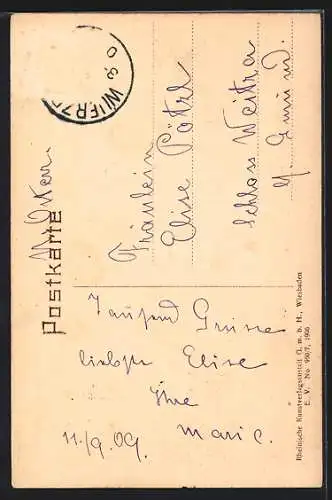 WIERZ
Postkarte
N. Österr.
Fräulein
Elise Pötzl
Schloss Weitra
b/ Gmünd.
Tausend Grüsse
liebste Elise
Ihre
Marie.
11./9.09.
Rheinische Kunstverlagsanstalt G. m. b. H., Wiesbaden
E. V. No 900/7, 1906